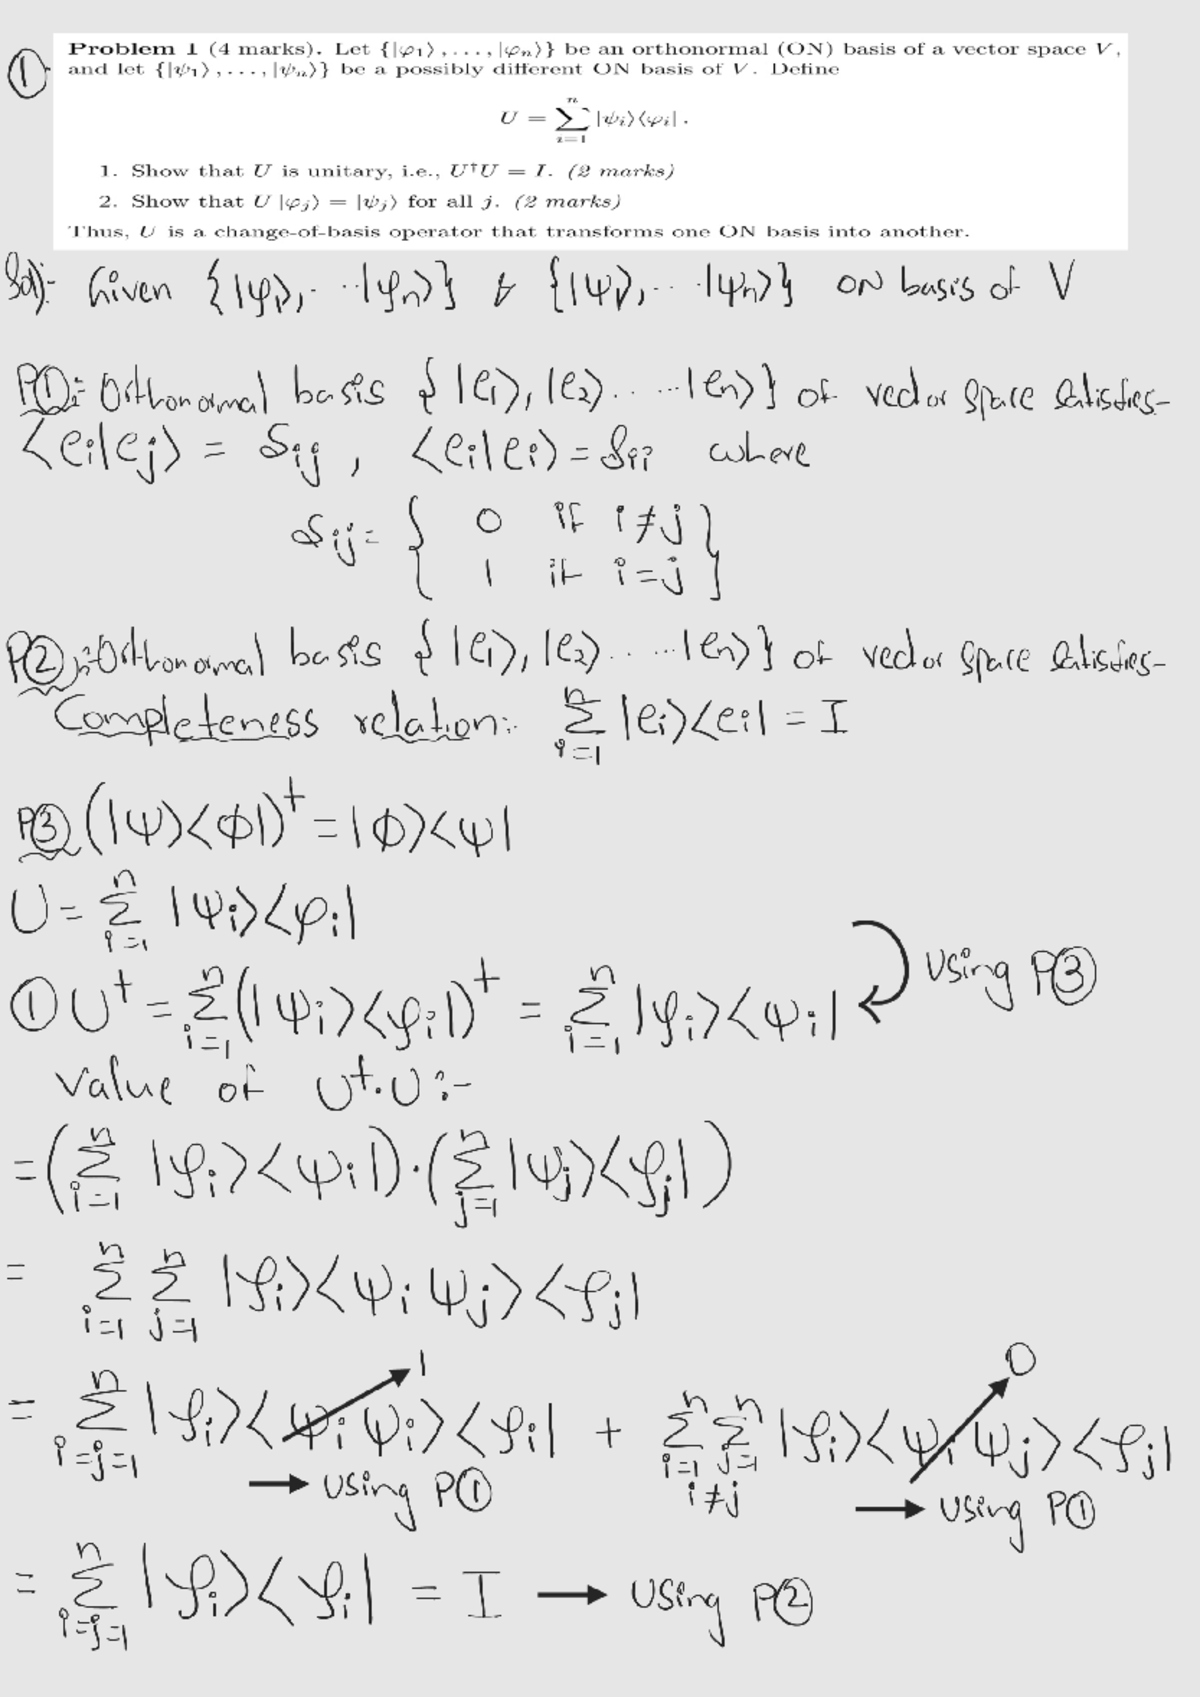 ①
Problem 1 (4 marks). Let {|φ₁⟩, . . . , |φₙ⟩} be an orthonormal (ON) basis of a vector space V,
and let {|ψ₁⟩, . . . , |ψₙ⟩} be a possibly different ON basis of V. Define
U = ∑ᵢ₌₁ⁿ |ψᵢ⟩⟨φᵢ| .
1. Show that U is unitary, i.e., U†U = I. (2 marks)
2. Show that U |φⱼ⟩ = |ψⱼ⟩ for all j. (2 marks)
Thus, U is a change-of-basis operator that transforms one ON basis into another.
Sol:- Given {|φ₁⟩, . . . |φₙ⟩} & {|ψ₁⟩, . . . |ψₙ⟩} ON basis of V
P①:- Orthonormal basis {|e₁⟩, |e₂⟩. . . . . |eₙ⟩} of vector space satisfies-
⟨eᵢ|eⱼ⟩ = δᵢⱼ , ⟨eᵢ|eᵢ⟩ = δᵢᵢ where
δᵢⱼ = { 0 if i≠j
1 if i=j }
P②:- Orthonormal basis {|e₁⟩, |e₂⟩. . . . . |eₙ⟩} of vector space satisfies-
Completeness relation:- ∑ᵢ₌₁ⁿ |eᵢ⟩⟨eᵢ| = I
P③ (|ψ⟩⟨ϕ|)† = |ϕ⟩⟨ψ|
U = ∑ᵢ₌₁ⁿ |ψᵢ⟩⟨φᵢ|
① U† = ∑ᵢ₌₁ⁿ (|ψᵢ⟩⟨φᵢ|)† = ∑ᵢ₌₁ⁿ |φᵢ⟩⟨ψᵢ| Using P③
Value of U†.U :-
= (∑ᵢ₌₁ⁿ |φᵢ⟩⟨ψᵢ|)·(∑ⱼ₌₁ⁿ |ψⱼ⟩⟨φⱼ|)
= ∑ᵢ₌₁ⁿ ∑ⱼ₌₁ⁿ |φᵢ⟩⟨ψᵢ ψⱼ⟩⟨φⱼ|
1 0
= ∑ᵢ₌ⱼ₌₁ⁿ |φᵢ⟩⟨ψᵢ ψᵢ⟩⟨φᵢ| + ∑ᵢ₌₁ⁿ ∑ⱼ₌₁ⁿ |φᵢ⟩⟨ψᵢ ψⱼ⟩⟨φⱼ|
→ Using P① i≠j → Using P①
= ∑ᵢ₌ⱼ₌₁ⁿ |φᵢ⟩⟨φᵢ| = I → Using P②